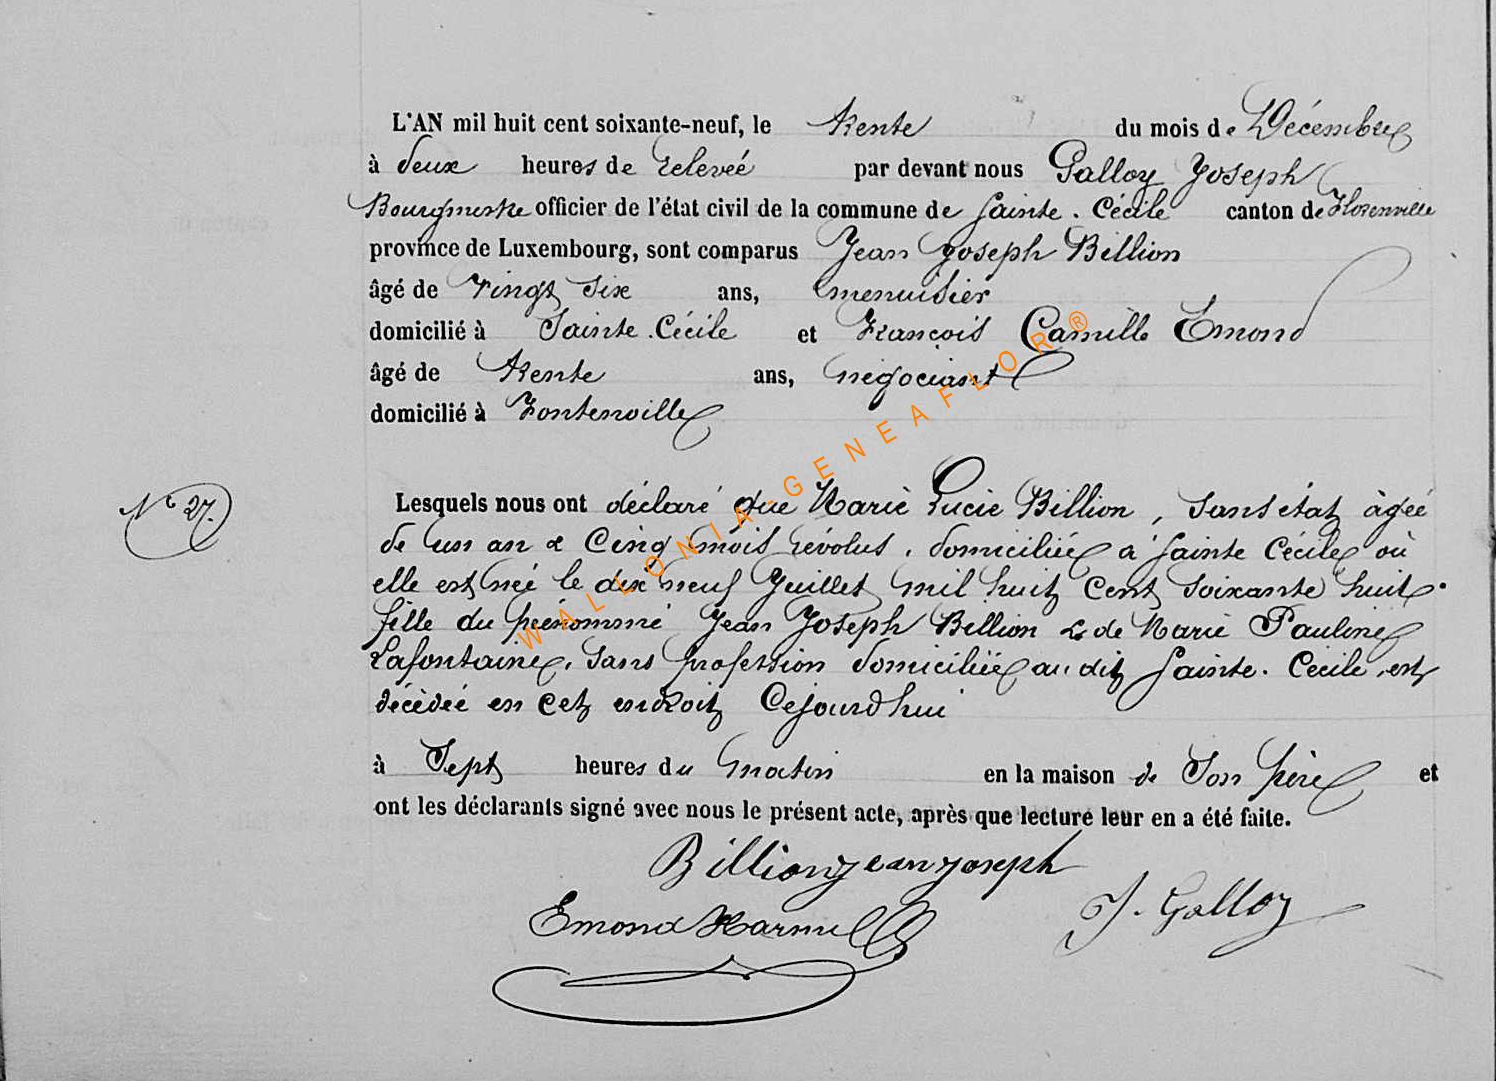 L'AN mil huit cent soixante-neuf, le trente du mois de Décembre
à deux heures de relevée par devant nous Galloy Joseph
Bourgmestre officier de l'état civil de la commune de Sainte. Cécile canton de Florenville
province de Luxembourg, sont comparus Jean Joseph Billion
âgé de vingt six ans, menuisier
domicilié à Sainte. Cécile et François Camille Emond
âgé de trente ans, négociant
domicilié à Fontenoille
Lesquels nous ont déclaré que Marie Lucie Billion, sans état âgée
N° 27.
de un an & cinq mois révolus, domiciliée à Sainte Cécile où
elle est née le dix neuf Juillet mil huit cent soixante huit.
fille du prénommé Jean Joseph Billion & de Marie Pauline
Lafontaine, sans profession domiciliée au dit Sainte. Cécile, est
décédée en cet endroit cejourd'hui
à Sept heures du matin en la maison de Son père et
ont les déclarants signé avec nous le présent acte, après que lecture leur en a été faite.
Billion jean joseph
Emond Kamil J. Galloy
WALLONIA-GENEAFLOR®